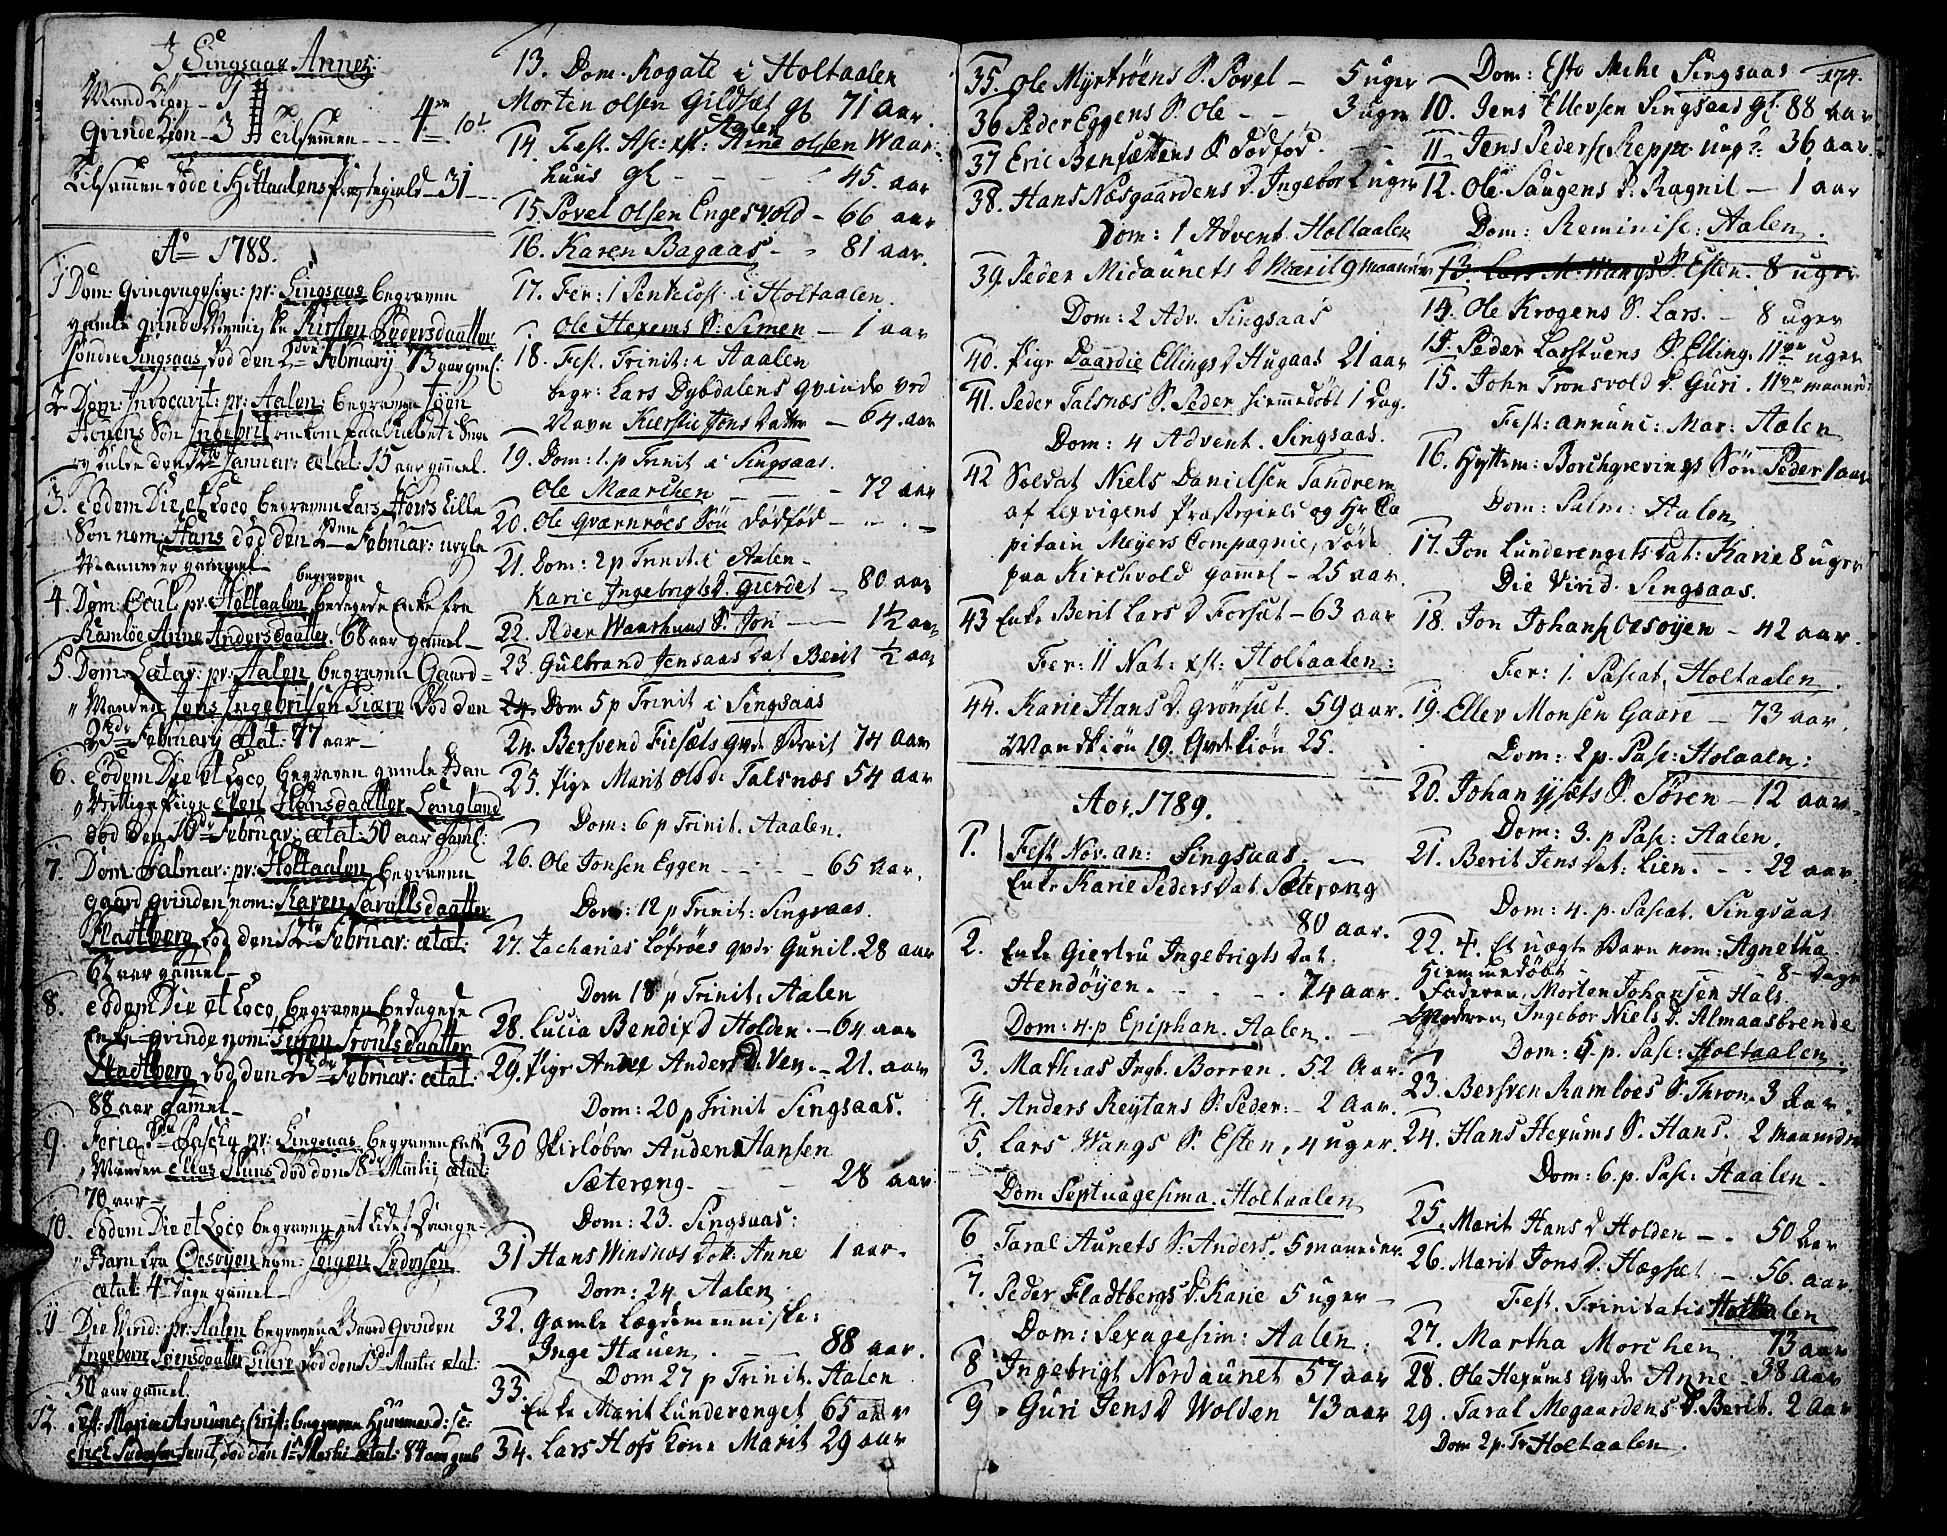 3 Singsaas Annex
Mandkiøn - 1
Qvindekiøn - 3 Tilsammen - - - 4
Tilsammen døde i Holtaalens Præstegield - 31 -
Ao 1788.
1 Dom: Qvinqvagesim: pr: Singsaas begraven
gamle qvinde Kirsten Pedersdaatter
Singsaas, død den 2den Februarij 73 aar gml:
2 Dom: Invocavit: pr: Aalen: begraven Joen
Søn Ingebrit
den Januar: ætat: 15 aar gammel.
3. eodem Die et Loco begraven Lars lille
Søn nom: Hans død den Februar:
Maaneder gammel -
begraven
4. Dom: Oculi pr: Holtaalen bedagede Enke fra
Ramløe Anne Andersdaatter. 68 aar gammel -
5 Dom: Lætar: pr: Aalen begraven Gaard-
Manden Jens Ingebritsen død den
23de Februarij ætat: 77 aar -
6. eodem Die et Loco begraven gamle
Pige Hansdaatter Langland
død den 10de Februar: ætat: 50 aar gaml:
7. Dom: Palmar: pr: Holtaalen begraven
gaard qvinden nom: Karen
Fladtberg død den Februar: ætat:
62 aar gammel -
8. eodem Die et Loco begraven bedagede
Enke qvinde nom:
Fladtberg død den 23de Februar: ætat:
88 aar gammel -
9 Feria Paschy pr: Singsaas begraven
Manden død den 18de Martii, ætat:
70 aar -
10. eodem Die et Loco begraven et lidet Drenge-
Barn fra Oesøyen nom: Jørgen Pedersen
ætat: 4re dage gamel -
11 Die Virid: pr: Aalen begraven Gaard Qvinden
Ingeborre død den Martii ætat:
50 aar gammel.
12. Fest: Mariæ Annunc: begraven
død den 1te Martii ætat: 84 aar
13. Dom. Rogate i Holtaalen
Morten Olsen Gildset gl 71 aar.
Aalen
14. Fest. Asc: xst: Arne Olsen Waar-
huus gl - - - 45. aar
15. Povel Olsen Engesvold - 66 aar
16. Karen Bagaas - - 81 aar.
17. Fer: 1 Pentecost i Holtaalen.
Ole Hexems S: Simen - 1 aar
18. Fest. Trinit: i Aaalen
begr: Lars Dybdalens qvinde ved
Navn Kierstie Jons Datter - 64 aar
19. Dom: 1. p Trinit i Singsaas.
Ole Maarchen - - - 72 aar
20. Ole Qværnrøes Søn dødfød - - -
21. Dom: 2 p Trinit. i Aalen -
Karie Ingebrigts D. Gierdet - 80 aar
22. Peder Waarhuus S. Jon - 1½ aar
23. Gulbrand Jensaas Dat Berit ½ aar
24. Dom 5 p Trinit i Singsaas
24. Bersvend Fiesets qvde Berit 74 aar
25. Pige Marit Ols D: Talsnæs 54 aar
Dom: 6 p Trinit. Aaalen.
26. Ole Jonsen Eggen - - - 65 aar.
Dom: 12 p Trinit: Singsaas.
27. Zacharias Löfröes qvde Gunil. 28 aar
Dom 18 p Trinit: Aalen
28. Lucia Bendix D Holden. - 64 aar
29. Pige Anne Anders D. Ven. - 21. aar
Dom: 20 p Trinit Singsaas.
30 Skirløber Auden Hansen
Sætereng - - 28 aar
Dom: 23. Singsaas:
31 Hans Winsnes Dot: Anne 1 aar.
Dom: 24 Aalen
32. Gamle Lægdemenniske:
Inge Hauen. - - 88 aar.
Dom 27 p Trinit. Aalen
33. Enke Marit Lunderenget 65 aar
34. Lars Hofs kone Marit 29 aar
35. Ole Myrtrøens S. Povel - 5 uger
36 Peder Eggens S. Ole - - 3 uger
37 Eric Bensættens S dødfød. -
38. Hans Næsgaardens D. Ingebor 2 uger
Dom: 1 Advent. Holtaalen
39. Peder Midaunets D Marit 9 maaneder
Dom: 2 Adv. Singsaas
40. Pige Daardie Ellings D Hugaas 21 aar
41. Peder Talsnæs S. Peder hiemmedøbt 1 dag.
Dom: 4 Advent. Singsaas.
42 Soldat Niels Danielsen Tandrem
af Lexvigens Præstegield og Hr Ca
pitain Meyers Compagnie, døde
paa Kirchvold gammel - 25 aar.
43 Enke Berit Lars D Forset - 63 aar
Fer: II Nat: xst: Holtaalen:
44. Karie Hans D. Grønset. 59 aar.
Mandkiøn 19. Qvdekiøn 25.
Ao: 1789.
1. Fest Nov. an: Singsaas. -
Enke Karie Peders Dat. Sætereng
80 aar.
2. Enke Giertru Ingebrigts Dat:
Hendøyen. - - - 74 aar.
Dom: 4. p Epiphan. Aalen. -
3. Mathias Ingb. Borren. 52 Aar.
4. Anders Reytans S. Peder. - 2 Aar.
5. Lars Wangs S. Esten, 4 uger.
Dom Septuagesima. Holtaalen
6 Taral Aunets S. Anders. 5 maaneder
7. Peder Fladtbergs D. Karie 5 uger -
Dom: Sexagesim: Aalen:
8 Ingebrigt Nordaunet 57 aar
9 Guri Jens D Wolden 73 aar
174.
Dom: Esto Mihi Singsaas
10. Jens Ellevsen Singsaas gl. 88 aar
11. Jens Peders: Reppe ung? 36 aar
12. Ole Haugens D. Ragnil - 1 aar
Dom: Reminisc: Aalen.
13. Lars M. Wangs S. Esten. 8 uger
14. Ole Krogens S. Lars. - 8 uger
15. Peder Larstuens S. Elling. 11ve uger
15. John Tronsvold D. Guri. 11ve maaned:
Fest: annunc: Mar: Aalen
16. Hyttem: Borchgrevings Søn Peder 1 aar
Dom: Palm: Aalen
17. Jon Lunderengets Dat: Karie 8 uger
Die Virid. Singsaas.
18. Jon Johans: Oesøyen - 42 aar.
Fer: 1. Pascat, Holtaalen.
19. Ellev Monsen Gaare - 73 aar
Dom: 2 p. Pasc: Holtaalen:
20. Johan ysets S. Sören - 12 aar
Dom: 3. p Pasc: Aalen.
21. Berit Jens Dat: Lien. - - 22 aar.
Dom: 4. p. Pascat. Singsaas
22. Et uægte Barn nom: Agnetha
hiemmedøbt - - 8 - dage
Faderen, Morten Johansen Hals.
Moderen, Ingebor Niels D. Almaasbrende
Dom: 5. p. Pasc: Holtaalen.
23. Bersven Ramloes S. Thron. 3 Aar.
24. Hans Hexums S. Hans. 2 maaneder
Dom: 6. p. Pasc: Aaalen.
25. Marit Hans D Holden - . 50 Aar
26. Marit Jons D. Hægset - . 56. aar
Fest. Trinitatis Holtaalen
27. Martha Morchen. 73 aar
28. Ole Hexums Qvde Anne - 38 Aar
29. Taral Megaardens D. Berit. 2 Aar
Dom 2 p. Tr Holtaalen.